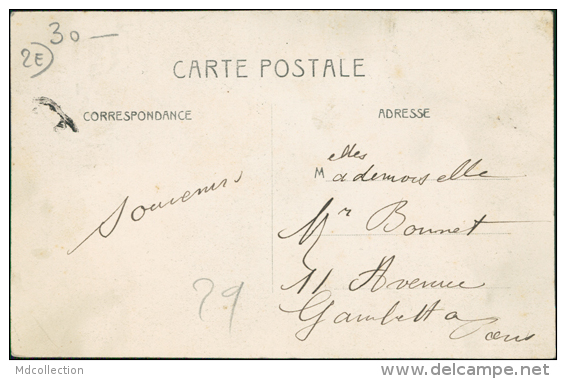 30 —
2E
CARTE POSTALE
CORRESPONDANCE
ADRESSE
elles
Mademoiselle
Souvenirs
Mr Bonnet
11 Avenue
Gambetta
Paris
29
Mdcollection
www.delcampe.net